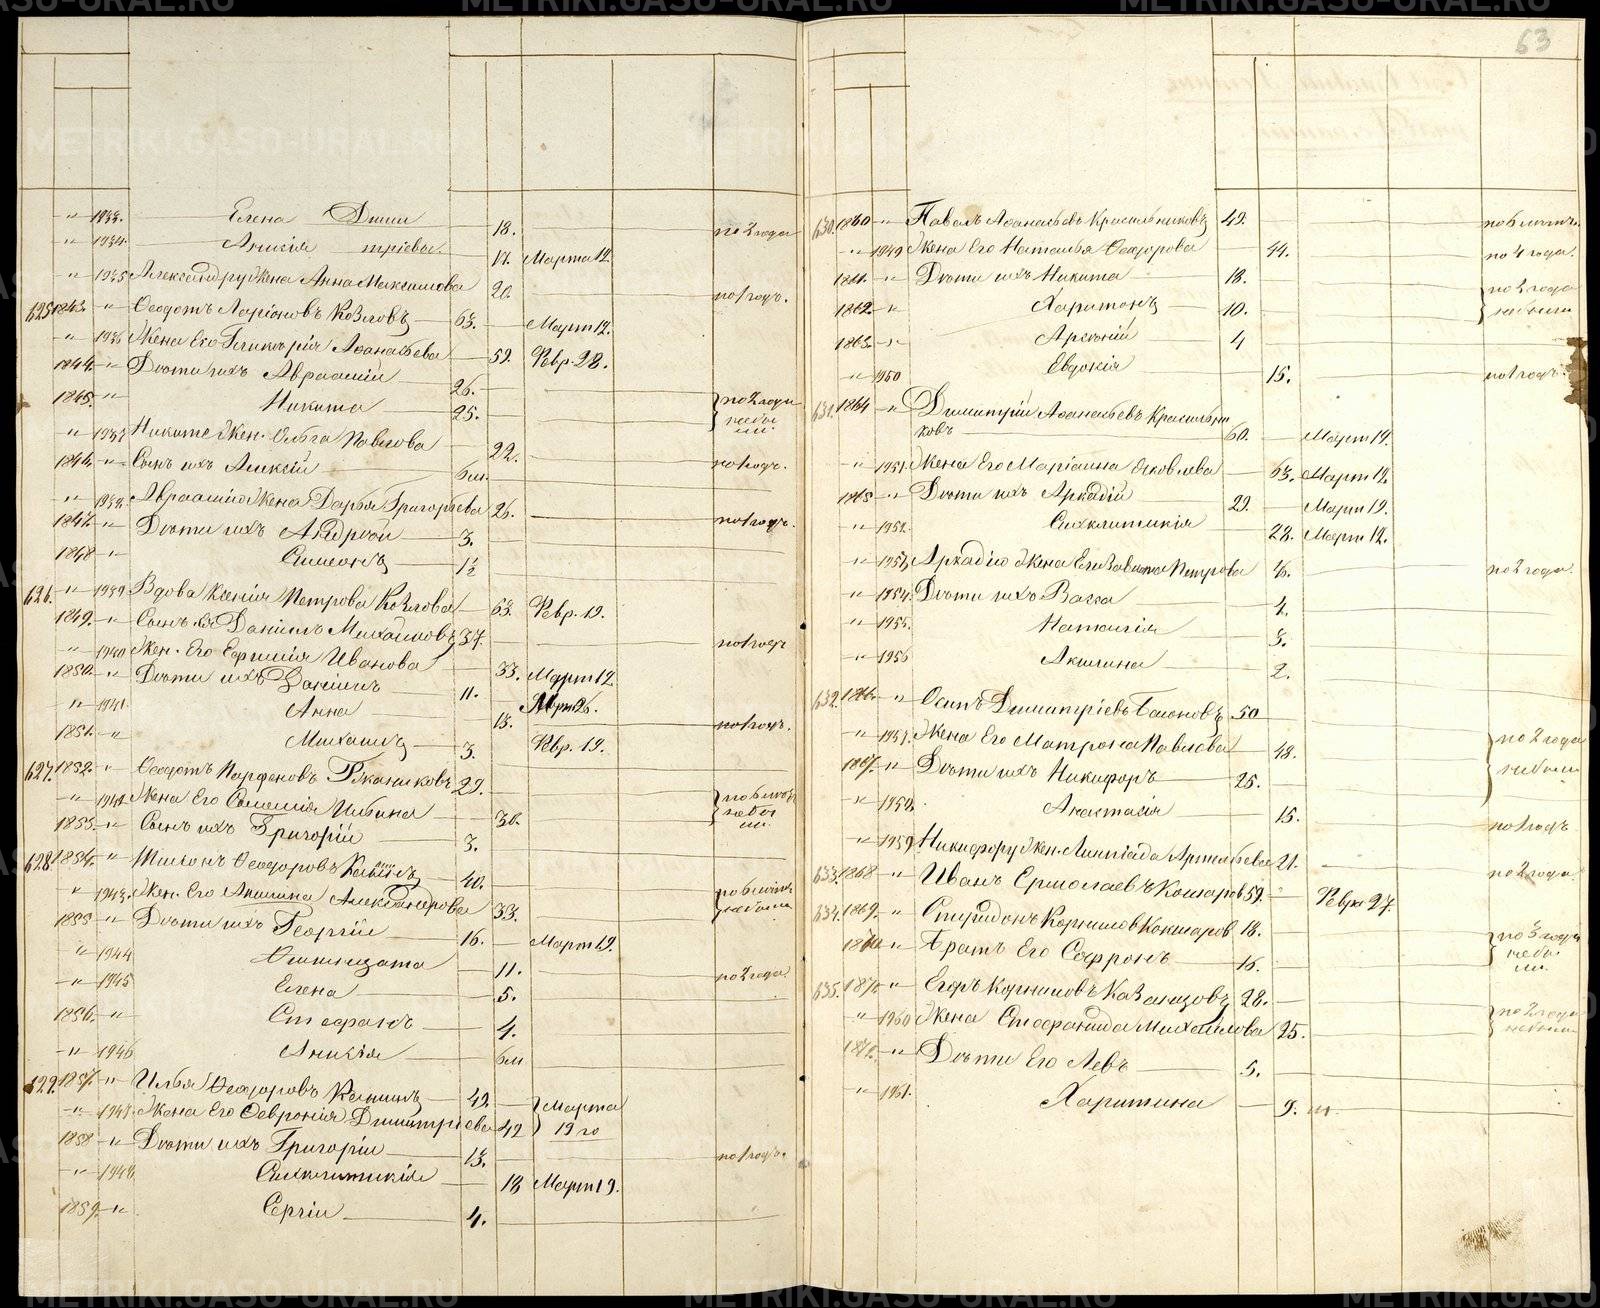 63
" 1933. Елена Дими 18. по 2 года
" 1934. Аникія тріева. 17. Марта 12.
" 1935 Александру Жена Анна Максимова 20. по 1 годъ.
625 1843. " Ѳеодотъ Ларіоновъ Козловъ 63. Март 12.
" 1936 Жена Его Гликерія Аѳанасьева 59. Февр. 28.
1844. " Дѣти ихъ Авраамій 26.
1845. " Никита 25. по 2 года небы ли.
" 1937 Никите Жен. Ольга Павлова 22.
1846. " Сынъ ихъ Алексій 6 м. по 1 годъ.
" 1938. Авраамію Жена Дарья Григорьева 26.
1847. " Дѣти ихъ Андрей 3. по 1 годъ.
1848 " Симеонъ 1½
626. " 1939 Вдова Ксенія Петрова Козлова 63. Февр. 19.
1849. " Сынъ ея Даніилъ Михайловъ 37.
" 1940 Жен. Его Ефимія Иванова 33. Март 12. по 1 годъ
1850. " Дѣти ихъ Даніилъ 11.
" 1941. Анна 13. 26. по 1 годъ.
1851. " Михаилъ 3. Февр. 19.
627. 1852. " Ѳеодотъ Парфеновъ 29.
" 1942. Жена Его Ильина 30. по 6 лѣтъ небы ли.
1853. " Сынъ ихъ Григорій 3.
628. 1854. " Ѳеодоровъ 40.
" 1943. Жен. Его Акилина Александрова 33. по 6 лѣтъ небыли
1855 " Дѣти ихъ Георгій 16. Март 19.
" 1944 11.
" 1945 Елена 5. по 2 года.
1856. " Стефанъ 4.
" 1946 Аникія 6 м
629. 1857. " Илья Ѳеодоровъ 49. Марта
" 1947. Жена Его Февронія Димитріева 42 19 го
1858 " Дѣти ихъ Григорій 13. по 1 годъ.
" 1948. Синклитикія 18 Март 19.
1859. " Сергій 4.
630. 1860 " Павелъ Аѳанасьевъ Красильниковъ 49. по 6 лѣтъ.
" 1949 Жена Его Наталья Ѳеодорова 44. по 4 года.
1861. " Дѣти ихъ Никита 18. по 2 года
1862. " Харитонъ 10. небыли
1863. " Арсеній 4
" 1950 Евдокія 15. по 1 годъ.
631. 1864 " Димитрій Аѳанасьевъ Красильни
ковъ 60. Март 19.
" 1951. Жена Его Маріамна Яковлева 63. Март 12.
1865 " Дѣти ихъ Аркадій 29. Март 19.
" 1952. Синклитикія 22. Март 12.
" 1953. Аркадію Жена Елизавета Петрова 26. по 2 года.
" 1954. Дѣти ихъ Васса 4.
" 1955. Наталія 3.
" 1956 Акилина 2.
632. 1866. " Осипъ Димитріевъ 50
" 1957. Жена Его Матрона Павлова 48. по 2 года
1867. " Дѣти ихъ Никифоръ 25. небыли
" 1958. Анастасія 15. по 1 годъ
" 1959. Никифору Жен. Лимпіада Артемьева 21. по 2 года.
633. 1868 " Иванъ Ермолаевъ Кокшаровъ 59. Февр. 27.
634. 1869. " Спиридонъ Корниловъ Кокшаров 18. по 3 года
1870 " Братъ Его Софронъ 16. небы ли.
635. 1871 " Егоръ Корниловъ Казанцовъ 28. по 2 года
" 1960 Жена Стефанида Михайлова 25. небыли
1872. " Дѣти Его Левъ 5.
" 1961. Харитина 9. м.
METRIKI.GASO-URAL.RU